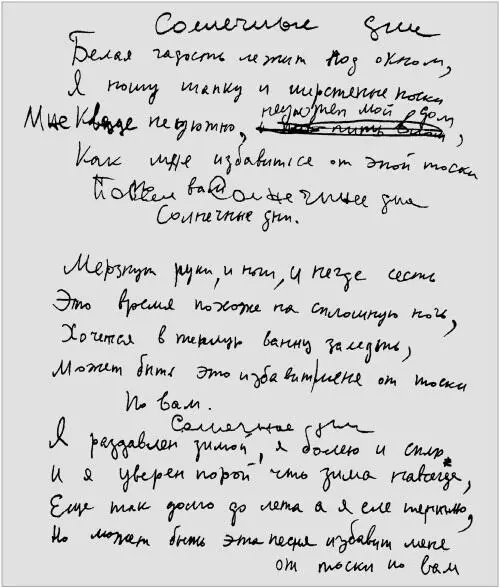 Солнечные дни
Белая гадость лежит под окном,
Я ношу шапку и шерстеные носки
неуютен мой дом
Мне везде неуютно,
Как мне избавиться от этой тоски
По вам Солнечные дни
Солнечные дни.
Мерзнут руки, и ноги, и негде сесть
Это время похоже на сплошную ночь,
Хочется в теплую ванну залезть,
Может быть это избавит меня от тоски
По вам.
Солнечные дни
Я раздавлен зимой, я болею и сплю
И я уверен порой что зима навсегда,
Еще так долго до лета а я еле терплю,
Но может быть эта песня избавит меня
от тоски по вам